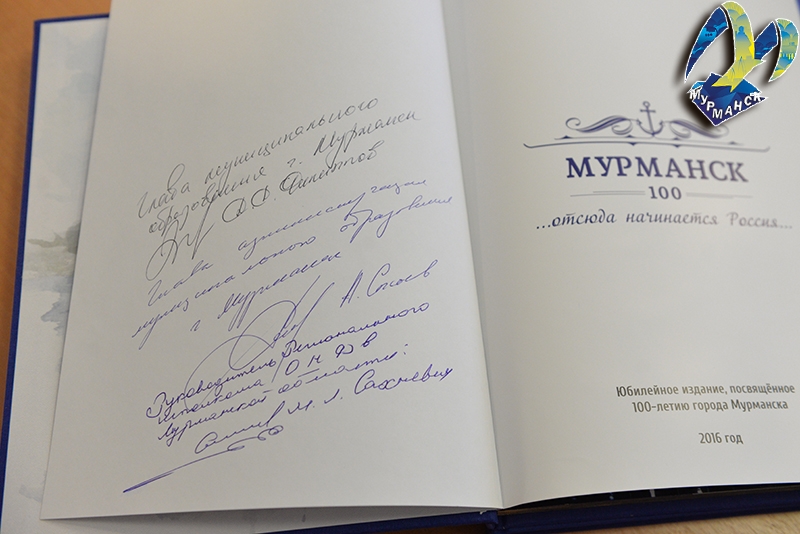 Глава муниципального
образования г. Мурманск
А.Д. Филиппов
Глава администрации
муниципального образования
г. Мурманск
А. Сысоев
Руководитель Регионального
исполкома ОНФ в
Мурманской области:
М. Л. Сахневич
МУРМАНСК
МУРМАНСК
100
...отсюда начинается Россия...
Юбилейное издание, посвящённое
100-летию города Мурманска
2016 год